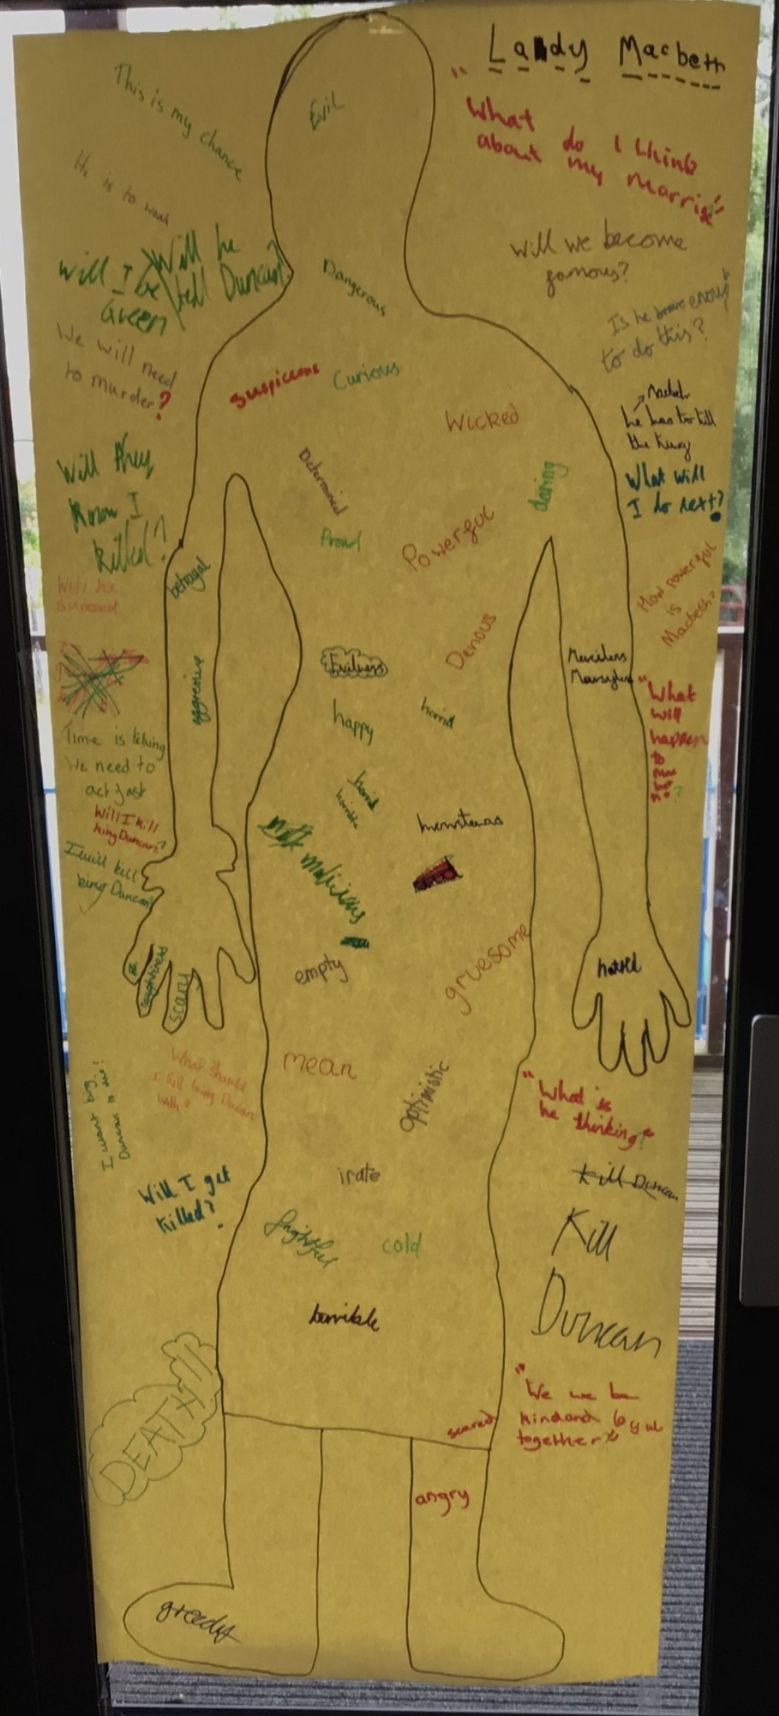 Lady Macbeth
"What do I think
about my marrige"
This is my chance
Evil
He is to weak
Will he
tell Duncan?
Will I be
Green
Dangerous
Will we become
famous?
Is he brave enough
to do this?
We will need
to murder?
Suspiceous
Curious
Wicked
he has to kill
the King
What will
I do next?
Will they
Know I
killed?
Determined
daring
Proud
Powerful
betrayal
How powerful
is
Macbeth?
Devious
Evilness
Merciless
aggressive
happy
horrid
"What
will
happen
to
me
Time is ticking
We need to
act fast
Will I kill
king Duncan?
I will kill
king Duncan
horrid
horrible
monsteras
malicious
empty
gruesome
hatred
scary
mean
optimistic
What should
I kill king Duncan
with?
I want king
Duncan to die!
"What is
he thinking?"
irate
Kill Duncan
Will I get
killed?
frightful
cold
Kill
Duncan
terrible
DEATH!!!
"We we be
kind and loyal
together"
scared
angry
greedy